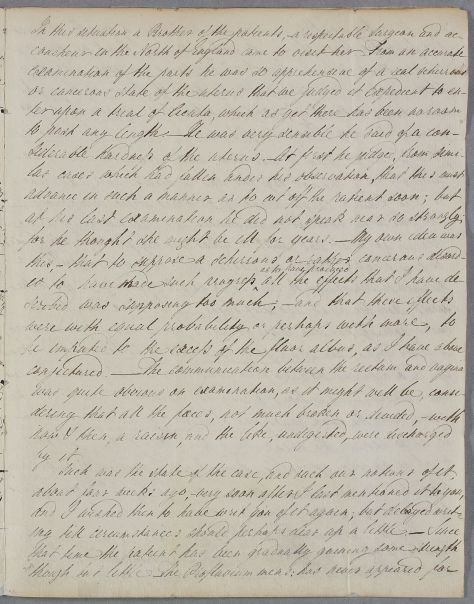 In this situation a Brother of the patients, a respectable Surgeon and ac-
coucheur in the North of England came to visit her. From an accurate
examination of the parts he was so apprehensive of a real schirrous
or cancerous state of the uterus that we judged it expedient to en-
ter upon a trial of Cicuta, which as yet there has been no room
to push any length. He was very sensible he said of a con-
siderable hardness of the uterus. At first he judged, from simi-
lar cases which had fallen under his observation, that this must
advance in such a manner as to cut off the patient soon; but
at his last examination he did not speak near so strongly
for he thought she might be ill for years. — My own idea was
this, — that to suppose a schirrous or cancerous disord-
er to have made such progress as to have produced all the effects that I have de-
scribed was supposing too much; — and that these effects
were with equal probability, or perhaps with more, to
be imputed to the excess of the fluor albus, as I have above
conjectured. — The communication between the rectum and vagina
was quite obvious on examination, as it might well be, consi-
dering that all the fæces, not much broken or divided, with
now & then, a raisin, and the like, undigested, were discharged
by it.
Such was the state of the case, and such our notions of it,
about four weeks ago, very soon after I last mentioned it to you,
and I wished then to have writ you of it again, but delayed writ-
ing till circumstances should perhaps clear up a little. — Since
that time the patient has been gradually gaining some strength
though but little. The Profluvium mens: has never appeared for